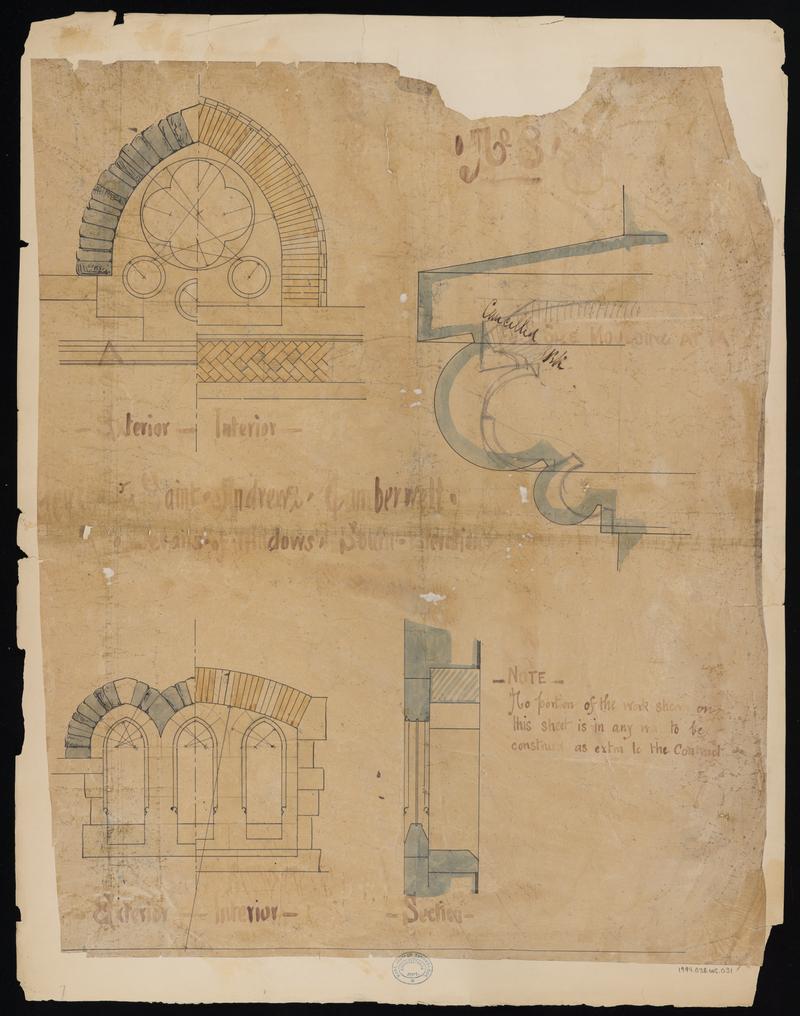 No 8
Cancelled
Moulding at
Exterior — Interior —
Saint Andrews Camberwell
Details of Windows South Elevation
— NOTE —
No portion of the work shewn on
this sheet is in any way to be
construed as extra to the Contract
Exterior — Interior —
— Section —
1994.028.WC.031